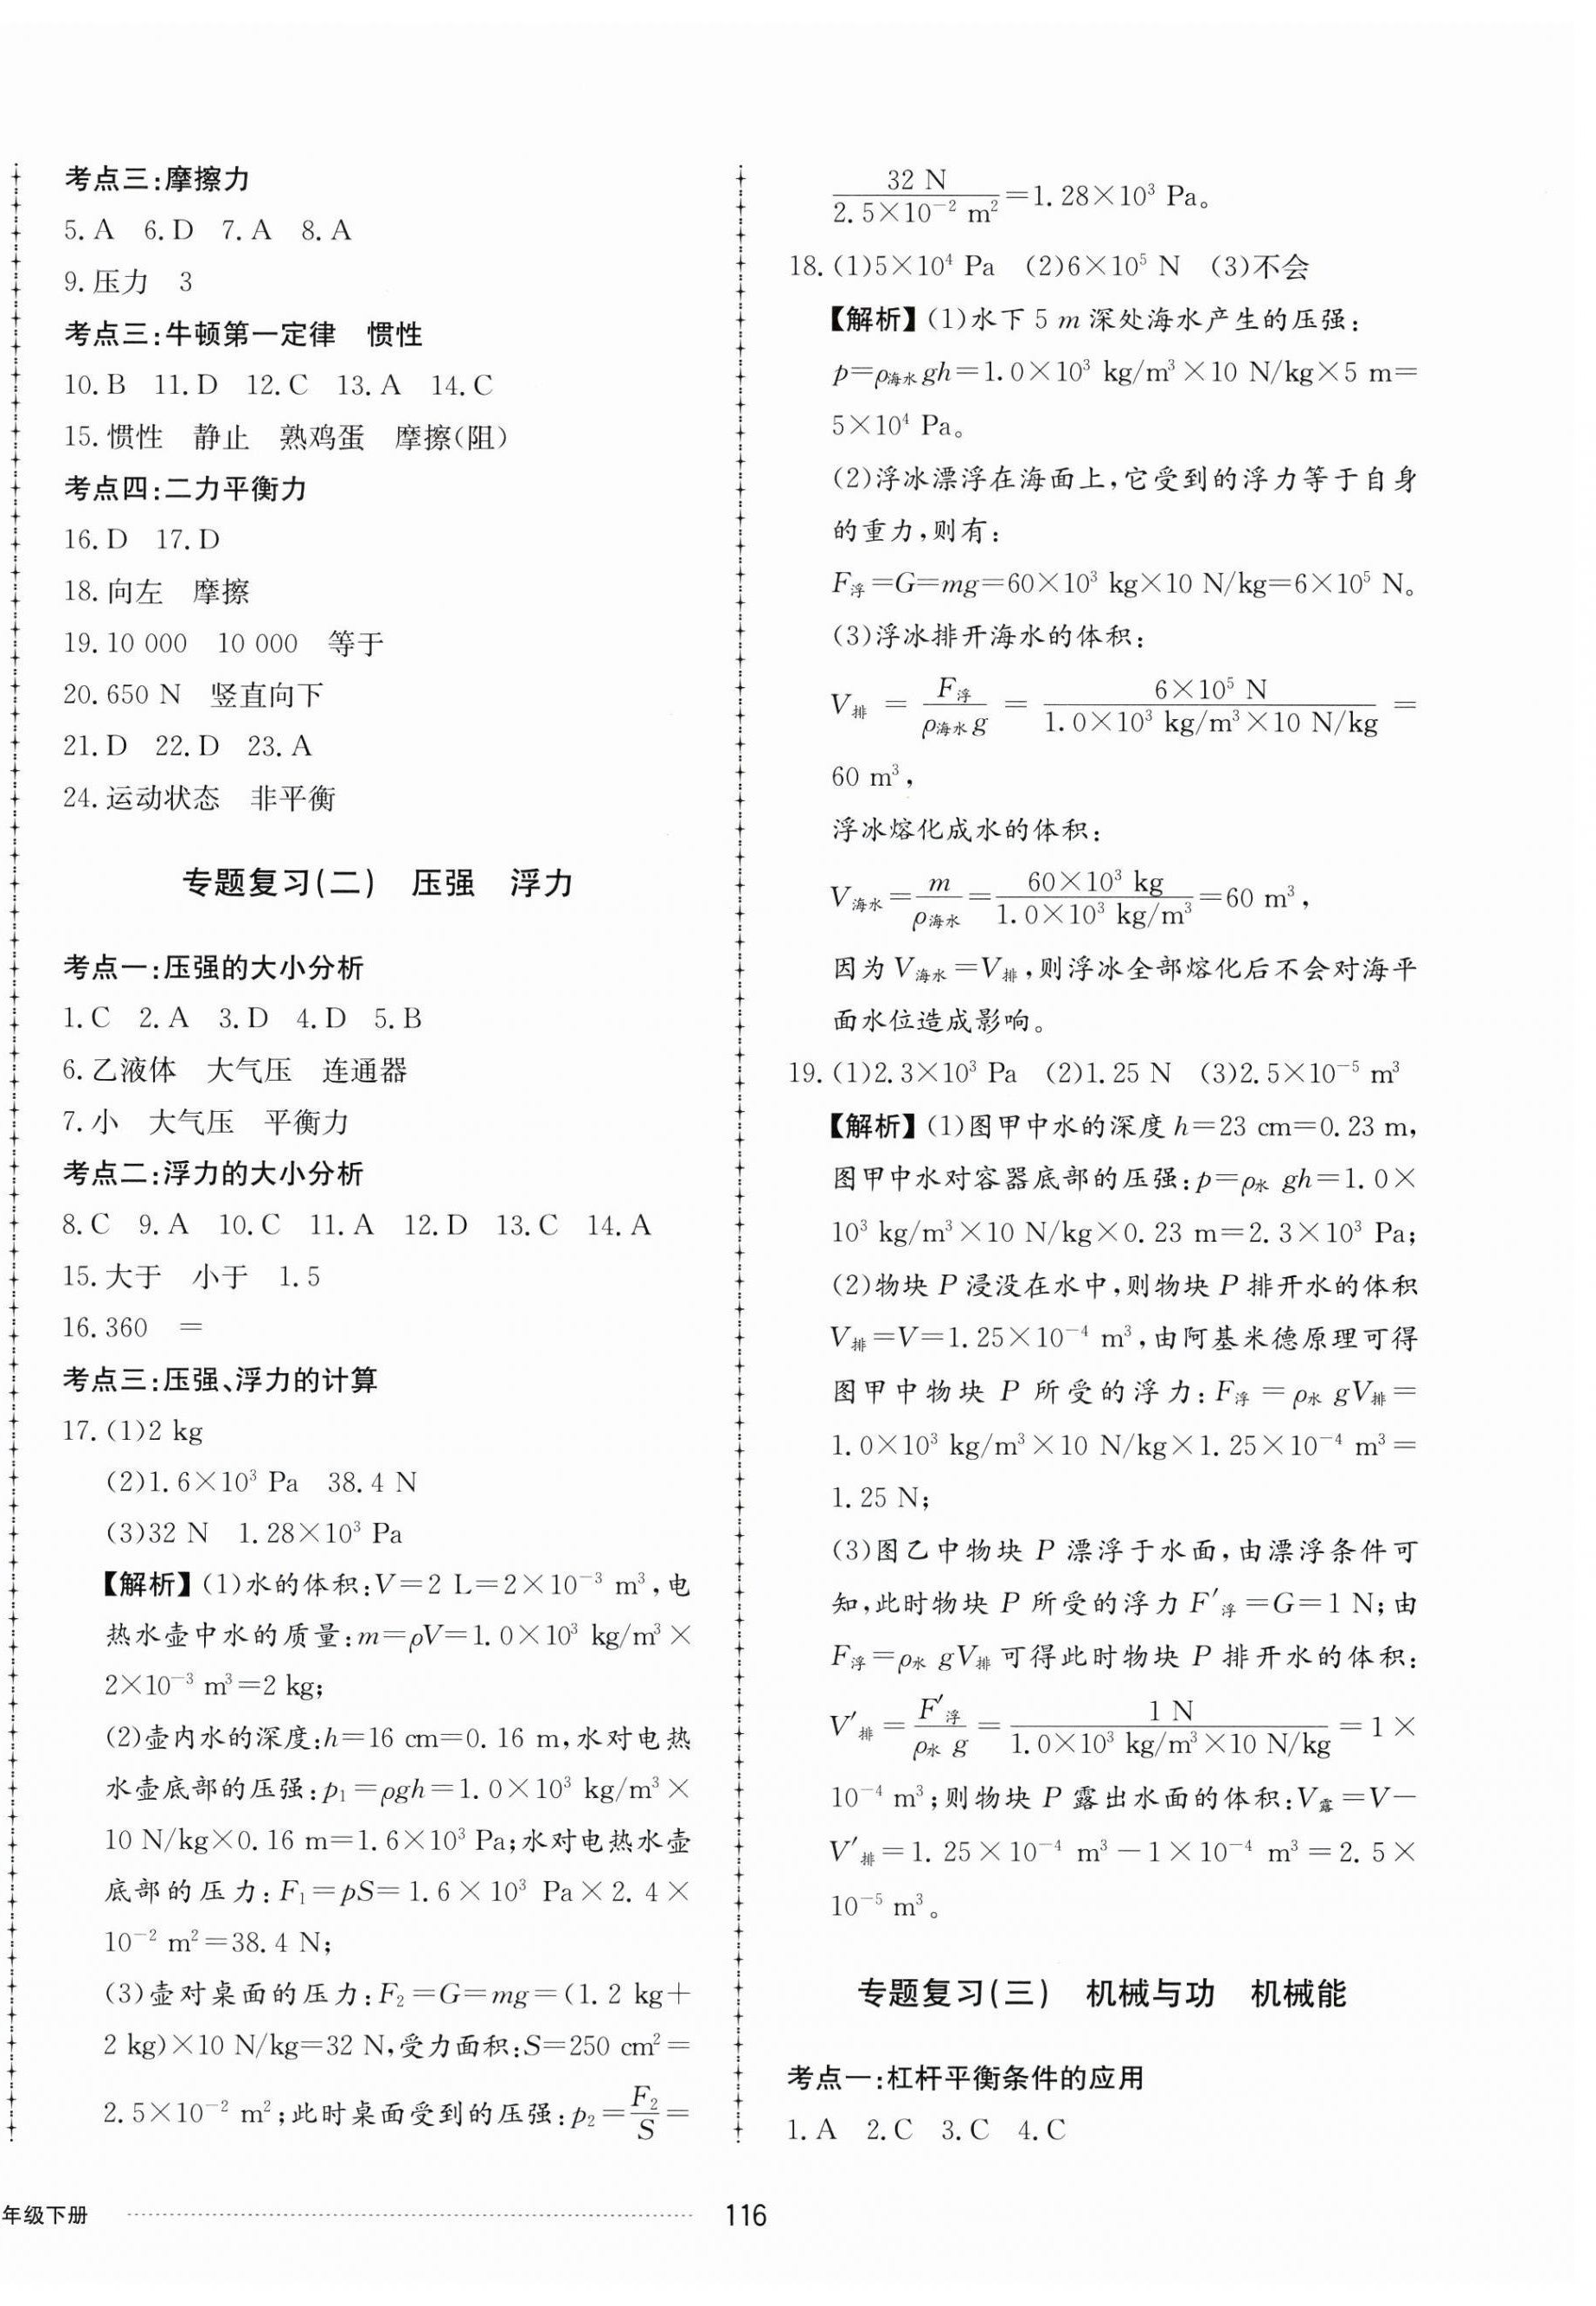 考点三:摩擦力
5.A 6.D 7.A 8.A
9.压力 3
考点三:牛顿第一定律 惯性
10.B 11.D 12.C 13.A 14.C
15.惯性 静止 熟鸡蛋 摩擦(阻)
考点四:二力平衡力
16.D 17.D
18.向左 摩擦
19.10 000 10 000 等于
20.650 N 竖直向下
21.D 22.D 23.A
24.运动状态 非平衡
专题复习(二) 压强 浮力
考点一:压强的大小分析
1.C 2.A 3.D 4.D 5.B
6.乙液体 大气压 连通器
7.小 大气压 平衡力
考点二:浮力的大小分析
8.C 9.A 10.C 11.A 12.D 13.C 14.A
15.大于 小于 1.5
16.360 =
考点三:压强、浮力的计算
17.(1)2 kg
(2)1.6×10³ Pa 38.4 N
(3)32 N 1.28×10³ Pa
【解析】(1)水的体积:V=2 L=2×10⁻³ m³,电
热水壶中水的质量:m=ρV=1.0×10³ kg/m³×
2×10⁻³ m³=2 kg;
(2)壶内水的深度:h=16 cm=0.16 m,水对电热
水壶底部的压强:p₁=ρgh=1.0×10³ kg/m³×
10 N/kg×0.16 m=1.6×10³ Pa;水对电热水壶
底部的压力:F₁=pS=1.6×10³ Pa×2.4×
10⁻² m²=38.4 N;
(3)壶对桌面的压力:F₂=G=mg=(1.2 kg+
2 kg)×10 N/kg=32 N,受力面积:S=250 cm²=
2.5×10⁻² m²;此时桌面受到的压强:p₂=F₂/S=
32 N/2.5×10⁻² m²=1.28×10³ Pa。
18.(1)5×10⁴ Pa (2)6×10⁵ N (3)不会
【解析】(1)水下 5 m 深处海水产生的压强:
p=ρ海水gh=1.0×10³ kg/m³×10 N/kg×5 m=
5×10⁴ Pa。
(2)浮冰漂浮在海面上,它受到的浮力等于自身
的重力,则有:
F浮=G=mg=60×10³ kg×10 N/kg=6×10⁵ N。
(3)浮冰排开海水的体积:
V排=F浮/ρ海水g=6×10⁵ N/1.0×10³ kg/m³×10 N/kg=
60 m³,
浮冰熔化成水的体积:
V海水=m/ρ海水=60×10³ kg/1.0×10³ kg/m³=60 m³,
因为V海水=V排,则浮冰全部熔化后不会对海平
面水位造成影响。
19.(1)2.3×10³ Pa (2)1.25 N (3)2.5×10⁻⁵ m³
【解析】(1)图甲中水的深度 h=23 cm=0.23 m,
图甲中水对容器底部的压强:p=ρ水gh=1.0×
10³ kg/m³×10 N/kg×0.23 m=2.3×10³ Pa;
(2)物块 P 浸没在水中,则物块 P 排开水的体积
V排=V=1.25×10⁻⁴ m³,由阿基米德原理可得
图甲中物块 P 所受的浮力:F浮=ρ水gV排=
1.0×10³ kg/m³×10 N/kg×1.25×10⁻⁴ m³=
1.25 N;
(3)图乙中物块 P 漂浮于水面,由漂浮条件可
知,此时物块 P 所受的浮力 F′浮=G=1 N;由
F浮=ρ水gV排可得此时物块 P 排开水的体积:
V′排=F′浮/ρ水g=1 N/1.0×10³ kg/m³×10 N/kg=1×
10⁻⁴ m³;则物块 P 露出水面的体积:V露=V−
V′排=1.25×10⁻⁴ m³−1×10⁻⁴ m³=2.5×
10⁻⁵ m³。
专题复习(三) 机械与功 机械能
考点一:杠杆平衡条件的应用
1.A 2.C 3.C 4.C
年级下册
116